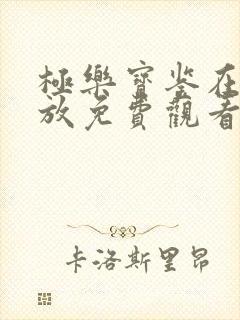 極樂寶鉴在
放免費觀看
卡洛斯里昂